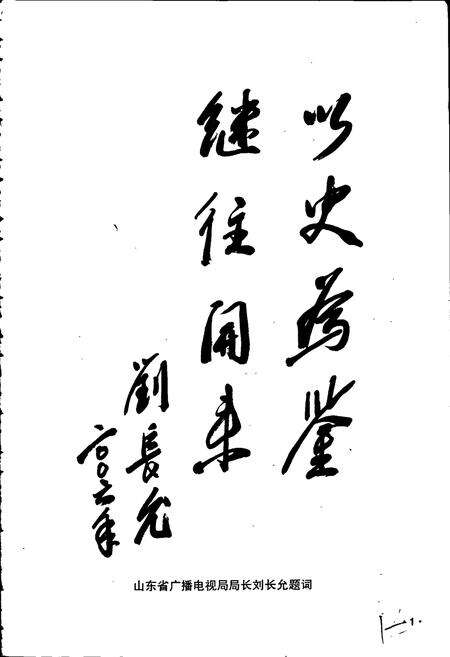 以史為鉴
继往開来
劉長允
二〇〇六年
山东省广播电视局局长刘长允题词